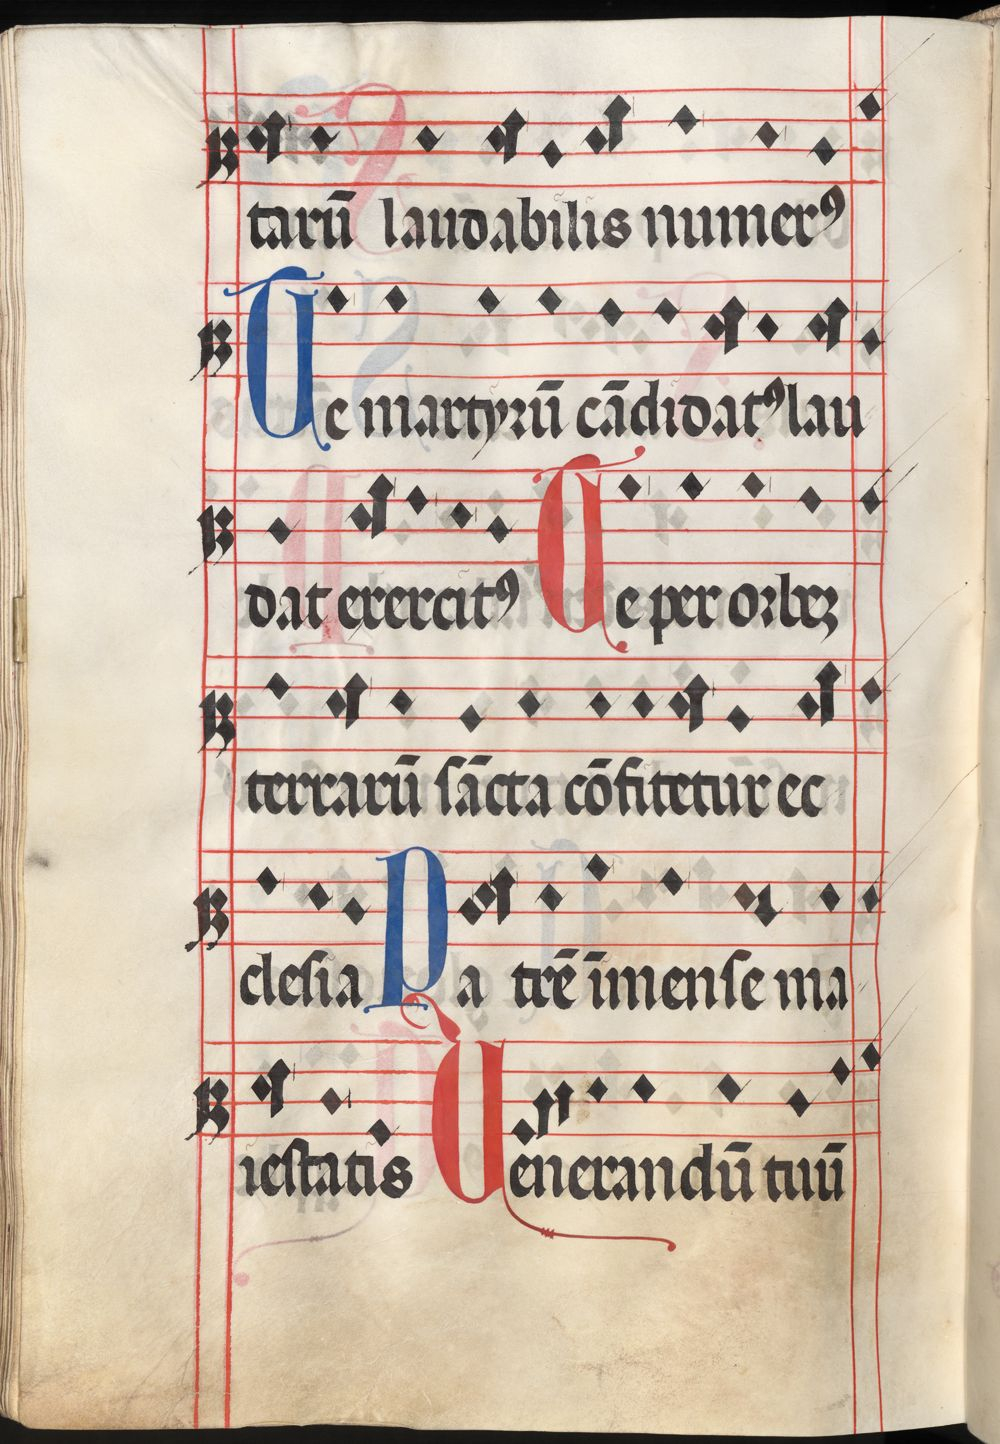 tarū laudabilis numerꝰ
Te martyrū cādidatꝰ lau
dat exercitꝰ Te per orbeꝫ
terrarū sācta cōfitetur ec
clesia Patrē īmense ma
iestatis Uenerandū tuū